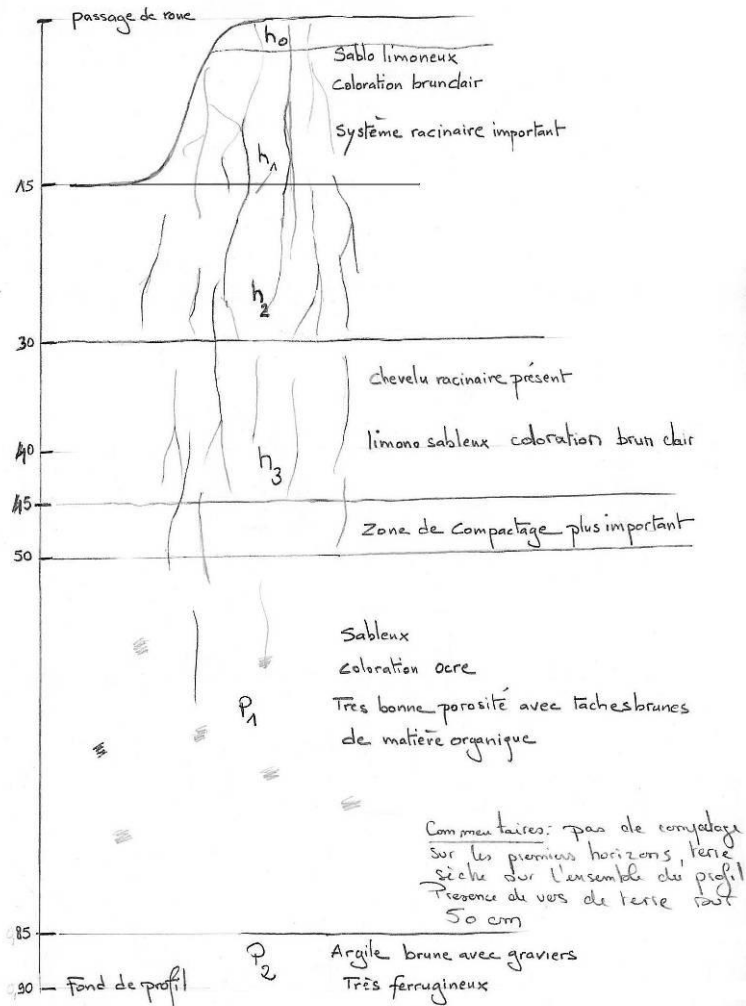 passage de roue
h0
Sablo limoneux
Coloration brun clair
Système racinaire important
h1
15
h2
30
chevelu racinaire présent
limono sableux coloration brun clair
40
h3
45
Zone de Compactage plus important
50
Sableux
Coloration ocre
P1
Très bonne porosité avec taches brunes
de matière organique
Commentaires: pas de compatage
sur les premiers horizons, terre
sèche sur l'ensemble du profil
Presence de vers de terre
50 cm
0,85
P2
Argile brune avec graviers
0,90
Fond de profil
Très ferrugineux